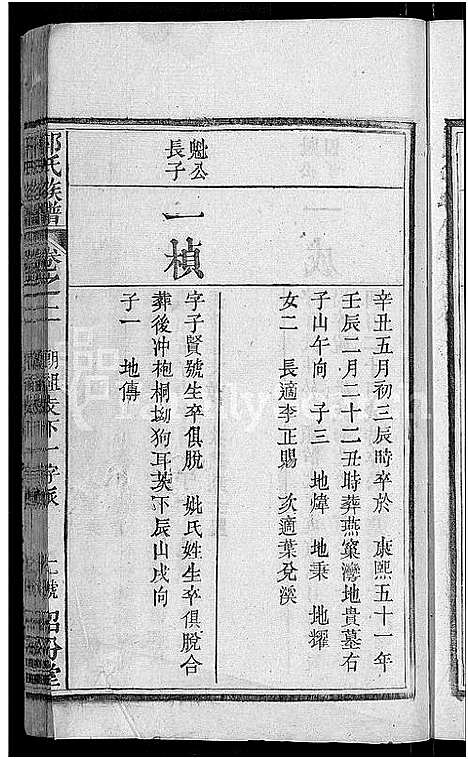 辛丑五月初三辰時卒於　康熙五十一年
壬辰二月二十二丑時葬燕窠灣地貴墓右
子山午向　子三　地煒　地秉　地耀
女二　長適李正賜　次適葉兌溪
魁公
長子
一楨
字子賢號生卒俱脫　妣氏姓生卒俱脫合
葬後冲袍桐坳狗耳茨下辰山戌向
子一　地傳
氏族譜
卷之二
朝祖表下一字派
號